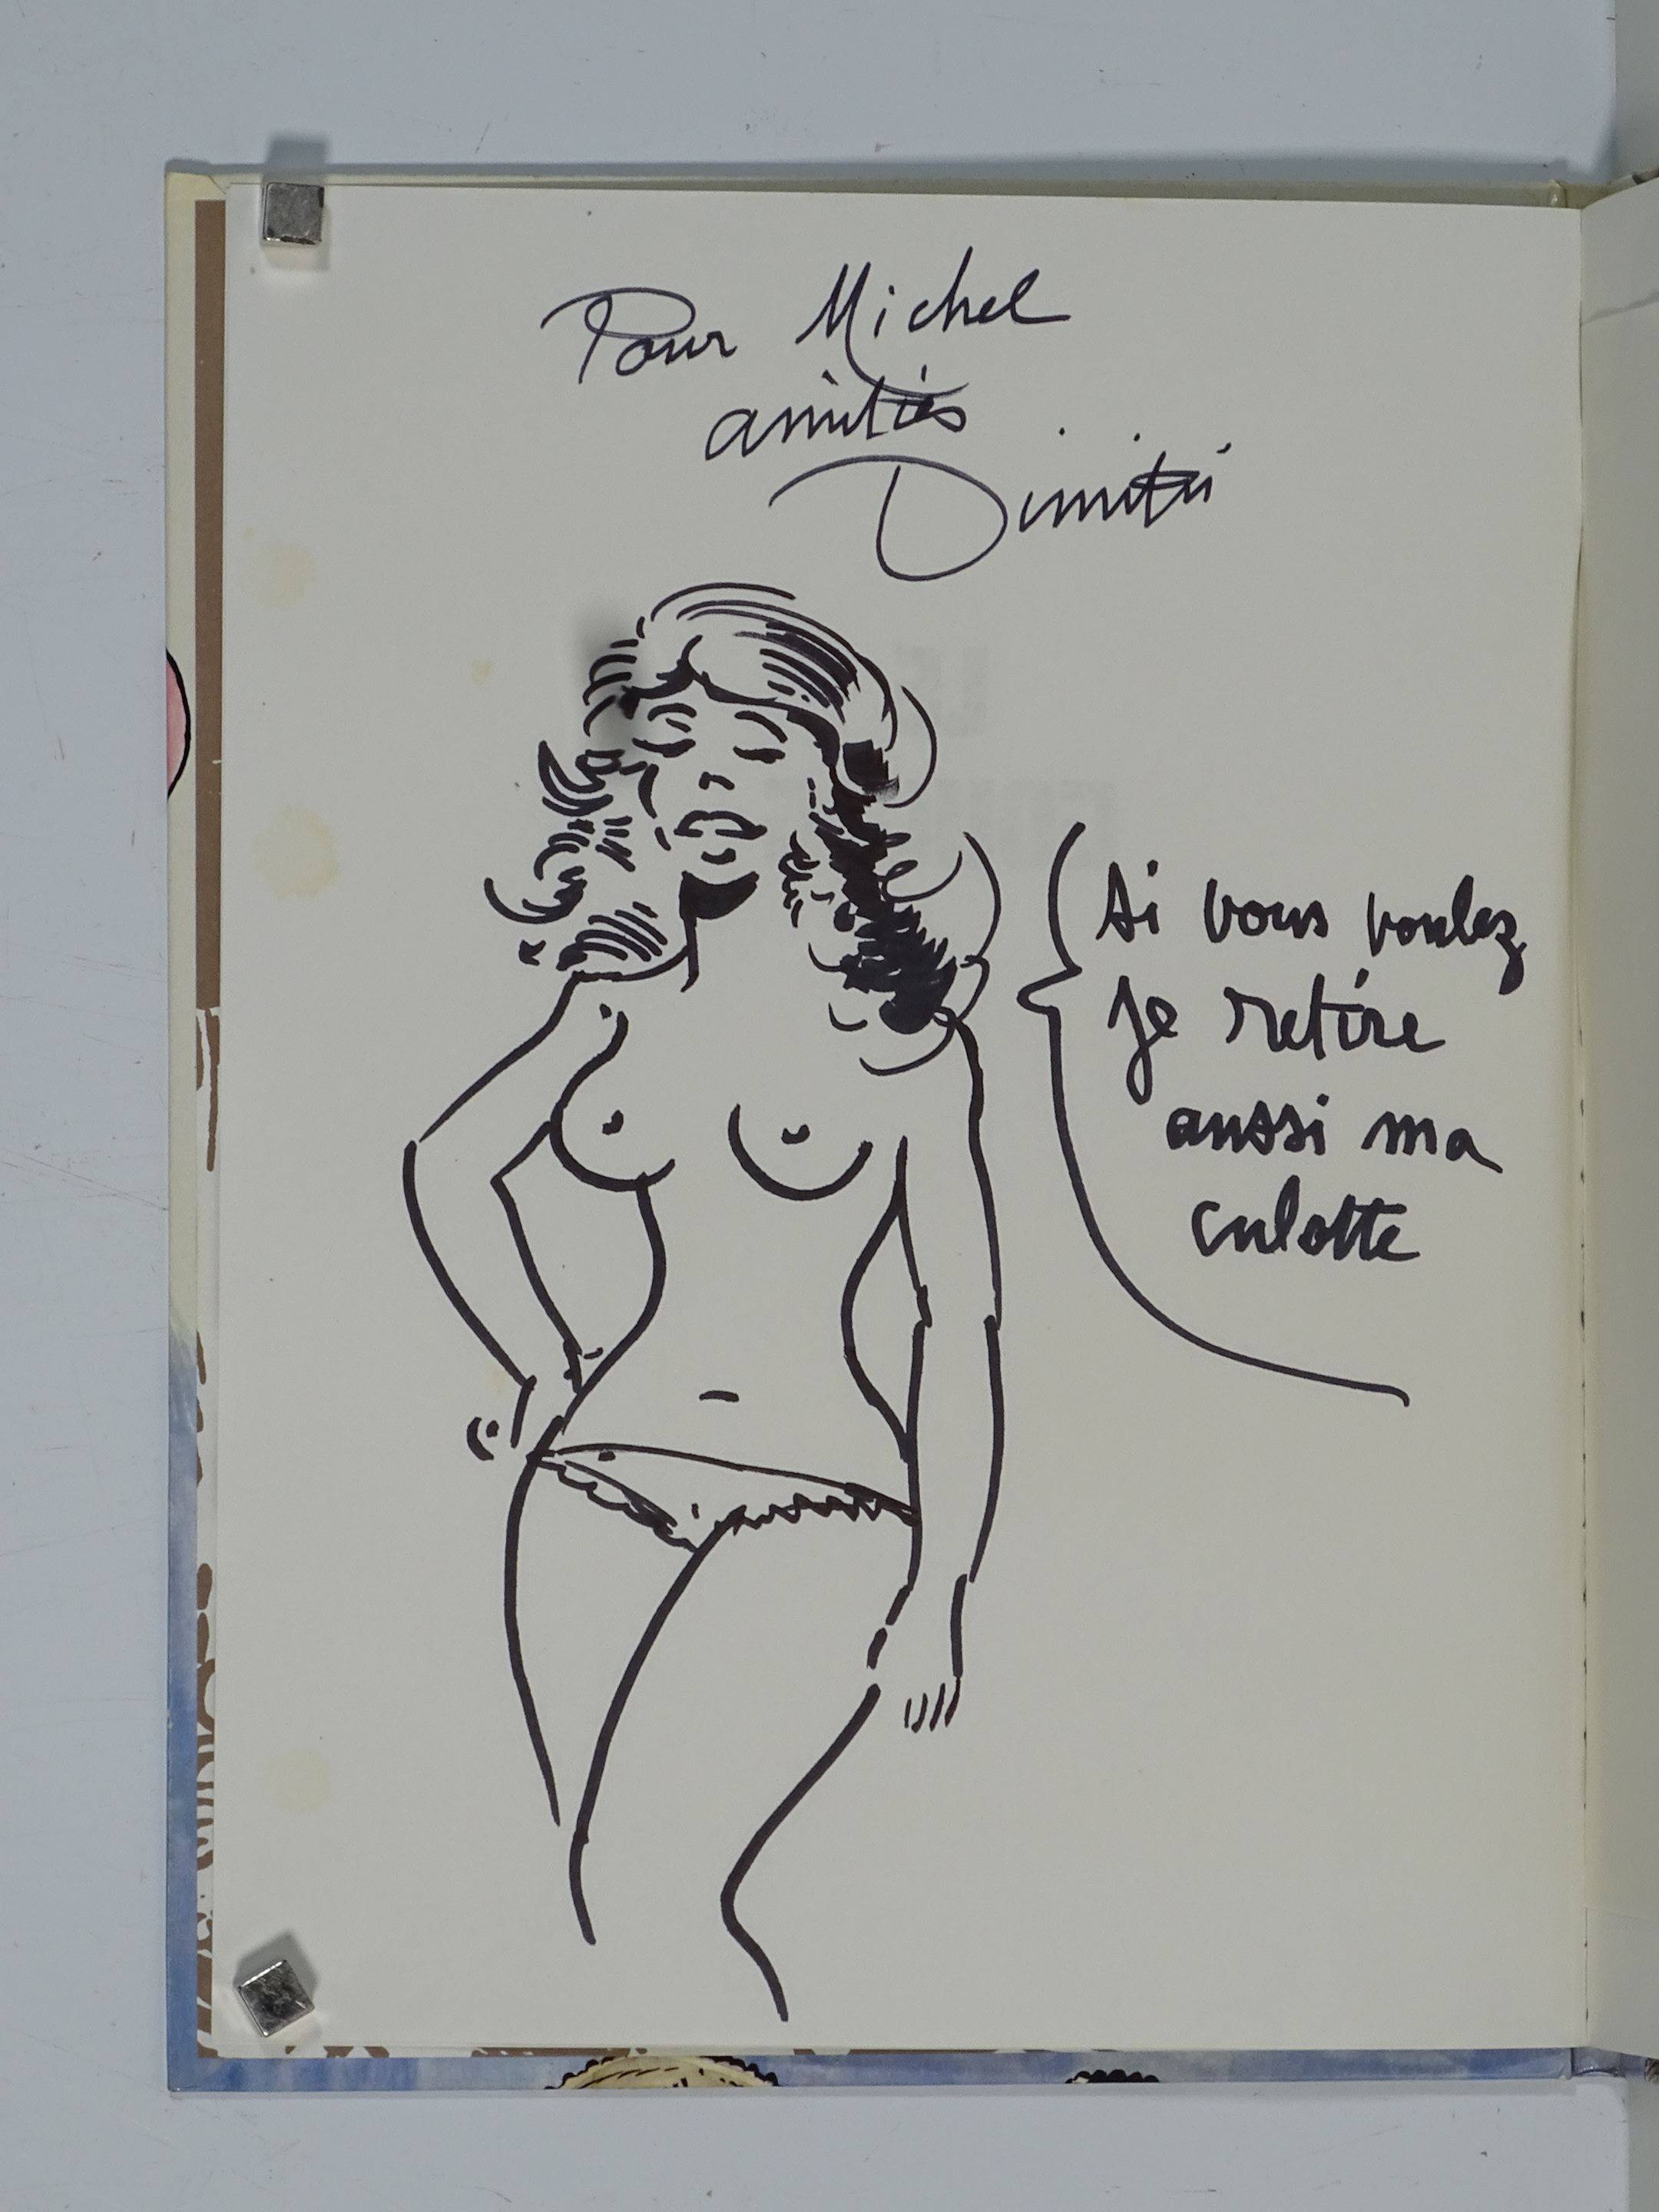 Pour Michel
amitiés
Dimitri
si vous voulez
je retire
aussi ma
culotte